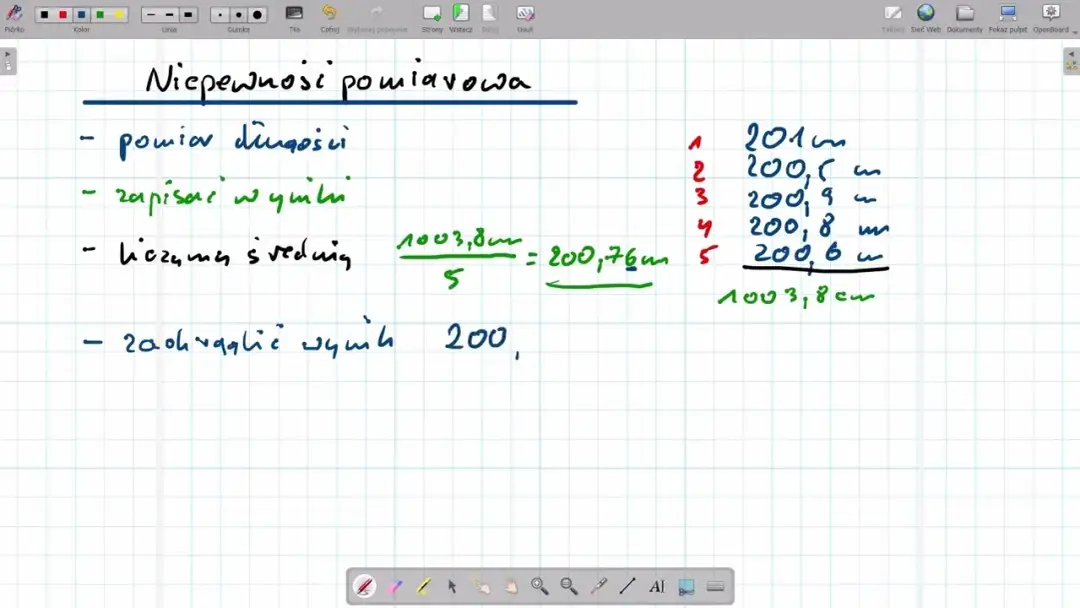 Piórko
Kolor
Linia
Gumka
Tło
Cofnij
Strony
Wstecz
Sieć Web
Dokumenty
Pokaż pulpit
OpenBoard
Niepewność pomiarowa
- pomiar długości
- zapisać wyniki
- liczymy średnią 1003,8cm / 5 = 200,76cm
- zaokrąglić wynik 200,
1 201cm
2 200,5 cm
3 200,9 cm
4 200,8 cm
5 200,6 cm
1003,8cm